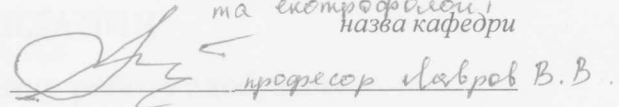 та екотрофології
назва кафедри
професор Лавров В.В.